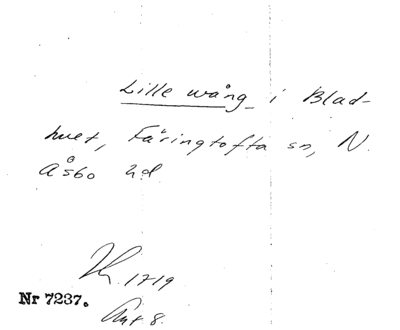 Lille wång i Blad-
huet, Färingtofta sn, N.
Åsbo hd
1719
Nr 7237.
Akt 8.